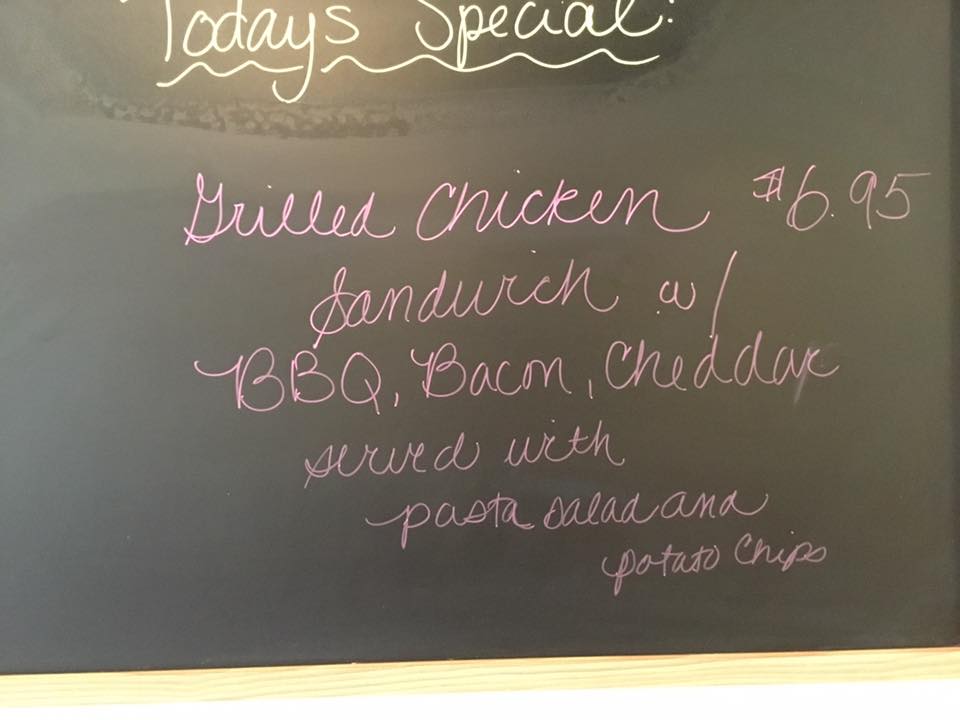 Todays Special:
Grilled Chicken $6.95
Sandwich w/
BBQ, Bacon, Cheddar
served with
pasta salad and
potato Chips